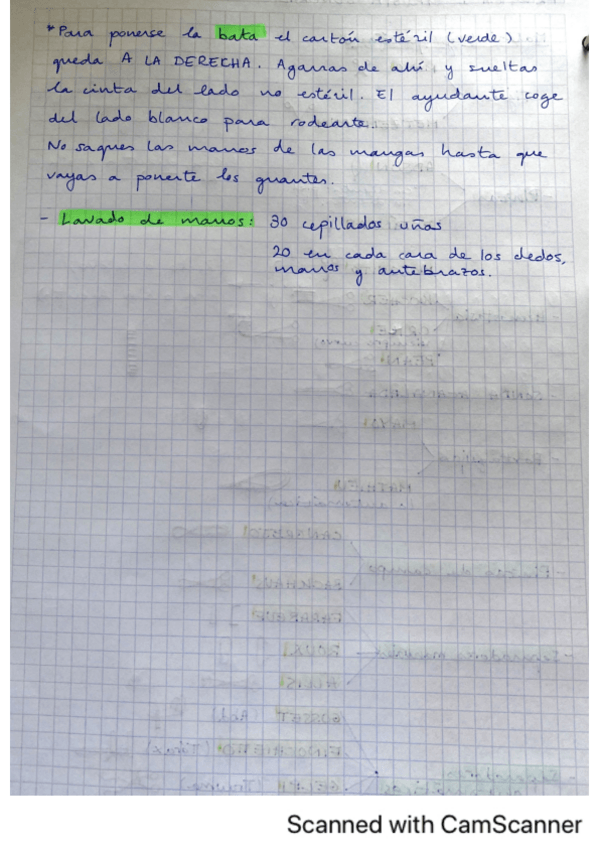 *Para ponerse la bata el cartón estéril (verde)
queda A LA DERECHA. Agarras de ahí y sueltas
la cinta del lado no estéril. El ayudante coge
del lado blanco para rodearte.
No saques las manos de las mangas hasta que
vayas a ponerte los guantes.
- Lavado de manos: 30 cepillados uñas
20 en cada cara de los dedos,
manos y antebrazos.
Scanned with CamScanner